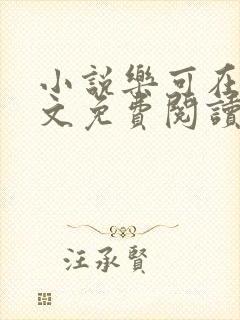 小說樂可在
文免費閱讀
汪承賢